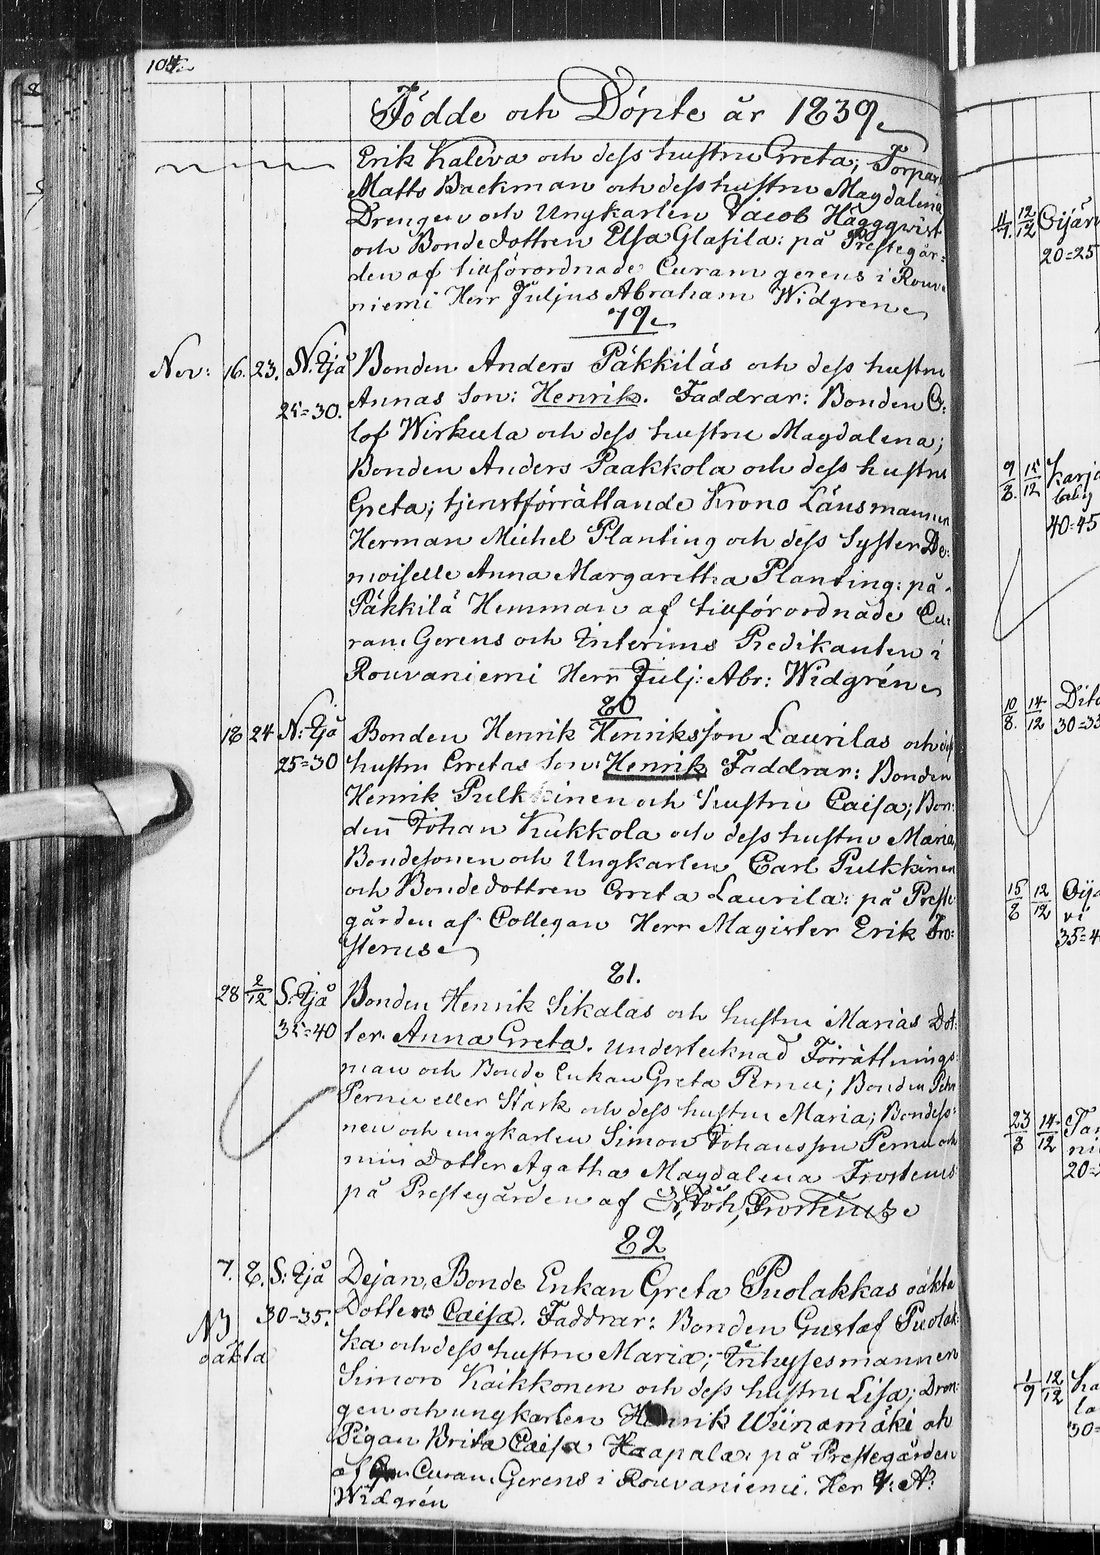 104.
Födde och Döpte år 1839.
Erik Kaleva och dess hustru Greta; Torpar
Matts Backman och dess hustru Magdalena
Drengen och Ungkarlen Jacob Häggqvist
och Bondedottren Elsa Glasila: på Prestegår=
den af tillförordnade Curam gerens i Rouva
niemi Herr Juljus Abraham Widgren
79.
Nov: 16. 23. N. Kjå Bonden Anders Päkkiläs och dess hustru
25=30. Annas Son: Henrik. Faddrar: Bonden O:
lof Wirkula och dess hustru Magdalena;
Bonden Anders Paakkola och dess hustru
Greta; tjenstförrättande Krono Länsmannen
Herman Michel Planting och dess Syster De:
moiselle Anna Margaretha Planting: på
Päkkilä Hemman af tillförordnade Cu:
ram Gerens och Interims Predikanten i
Rouvaniemi Herr Julj: Abr: Widgrén
80
18 24 N: Kjå Bonden Henrik Henriksson Laurilas och dess
25=30 hustru Gretas Son: Henrik Faddrar: Bonden
Henrik Pulkkinen och hustru Caisa; Bon:
den Johan Kukkola och dess hustru Maria,
Bondesonen och Ungkarlen Carl Pulkkinen
och Bondedottren Greta Laurila: på Preste
gården af Collegan Herr Magister Erik Fro:
sterus
81.
28 2/12 S: Kjå Bonden Henrik Sikalas och hustru Marias Dot:
35=40 ter Anna Greta. Undertecknad Förrättnings
man och Bonde Enkan Greta Pernu; Bonden Pehr
Pernu eller Stark och dess hustru Maria; Bondeso:
nen och ungkarlen Simon Johansson Pernu och
min Dotter Agatha Magdalena Frosterus
på Prestegården af Joh. Frosterus
82
7. 8. S: Kjå Dejan, Bonde Enkan Greta Puolakkas oäkta
30-35. Dotter Caisa. Faddrar: Bonden Gustaf Puolak:
NB
oäkta
ka och dess hustru Maria; Inhysesmannen
Simon Kaikkonen och dess hustru Lisa; Dren=
gen och ungkarlen Henrik Wiinamäki och
Pigan Brita Caisa Haapala: på Prestegården
af Curam Gerens i Rouvaniemi. Her J: A:
Widgrén
11/7 12/12
20=25
9/8. 15/12 Karja
40=45
10/8. 14/12 Dito
30=35
15/8 12/12
35=4
23/8 14/12
20=
1/9 12/12
30=